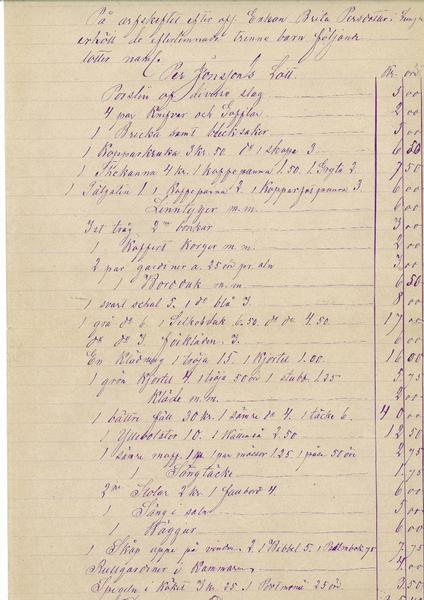 På arfskiftet efter afl. Enkan Brita Persdotter i
erhöll de efterlemnade trenne barn följande
lotter näml.
Per Jönsson's Lott. Kr. öre
Porslin af diverse slag 5 00
4 par Knifvar och Gafflar 2 00
1 Bricka samt blecksaker 5 00
1 Kopparkruka 3 kr. 50 do 1 skopa 3. 6 50
1 Thekanna 4 kr. 1 Kaffepanna 1.50. 1 Gryta 2. 7 50
1 1 Kaffepanna 2 1 Kopparpanna 3. 6 00
Linntyger m.m. 6 00
tråg 2ne 3 00
1 Koffert Korgar m.m. 2 00
2 par gardiner a. 25 öre pr. aln 3 00
1 Bordduk m.m. 6 50
1 svart schal 5. 1 do blå 3 8 00
1 grå do 6. 1 Silkesduk 6.50. do do 4.50 17 00
do do 3. förkläden 3. 6 00
En 1 tröja 15. 1 Kjortel 1.00. 16 00
1 grön Kjortel 4. 1 tröja 50 öre 1 stubb. 1.25 5 75
Kläde m.m. 2 00
1 bättre fäll 30 kr. 1 sämre do 4. 1 täcke 6. 40 00
1 Yllebolster 10. 1 2.50 12 50
1 sämre 1 par 1.25 1 påse 50 öre 2 75
1 Sängtäcke 1 75
2ne Stolar 2 kr. 1 4. 6 00
1 Säng i salen 5 00
1 Vaggur 6 00
1 Skåp uppe på vinden 2. 1 Bibbel 5. 1 Psalmbok 75 7.75
Rullgardiner i Kammaren 4 00
Spegeln i Köket 3 kr. 25. 1 Portmonä 25 öre. 3.50